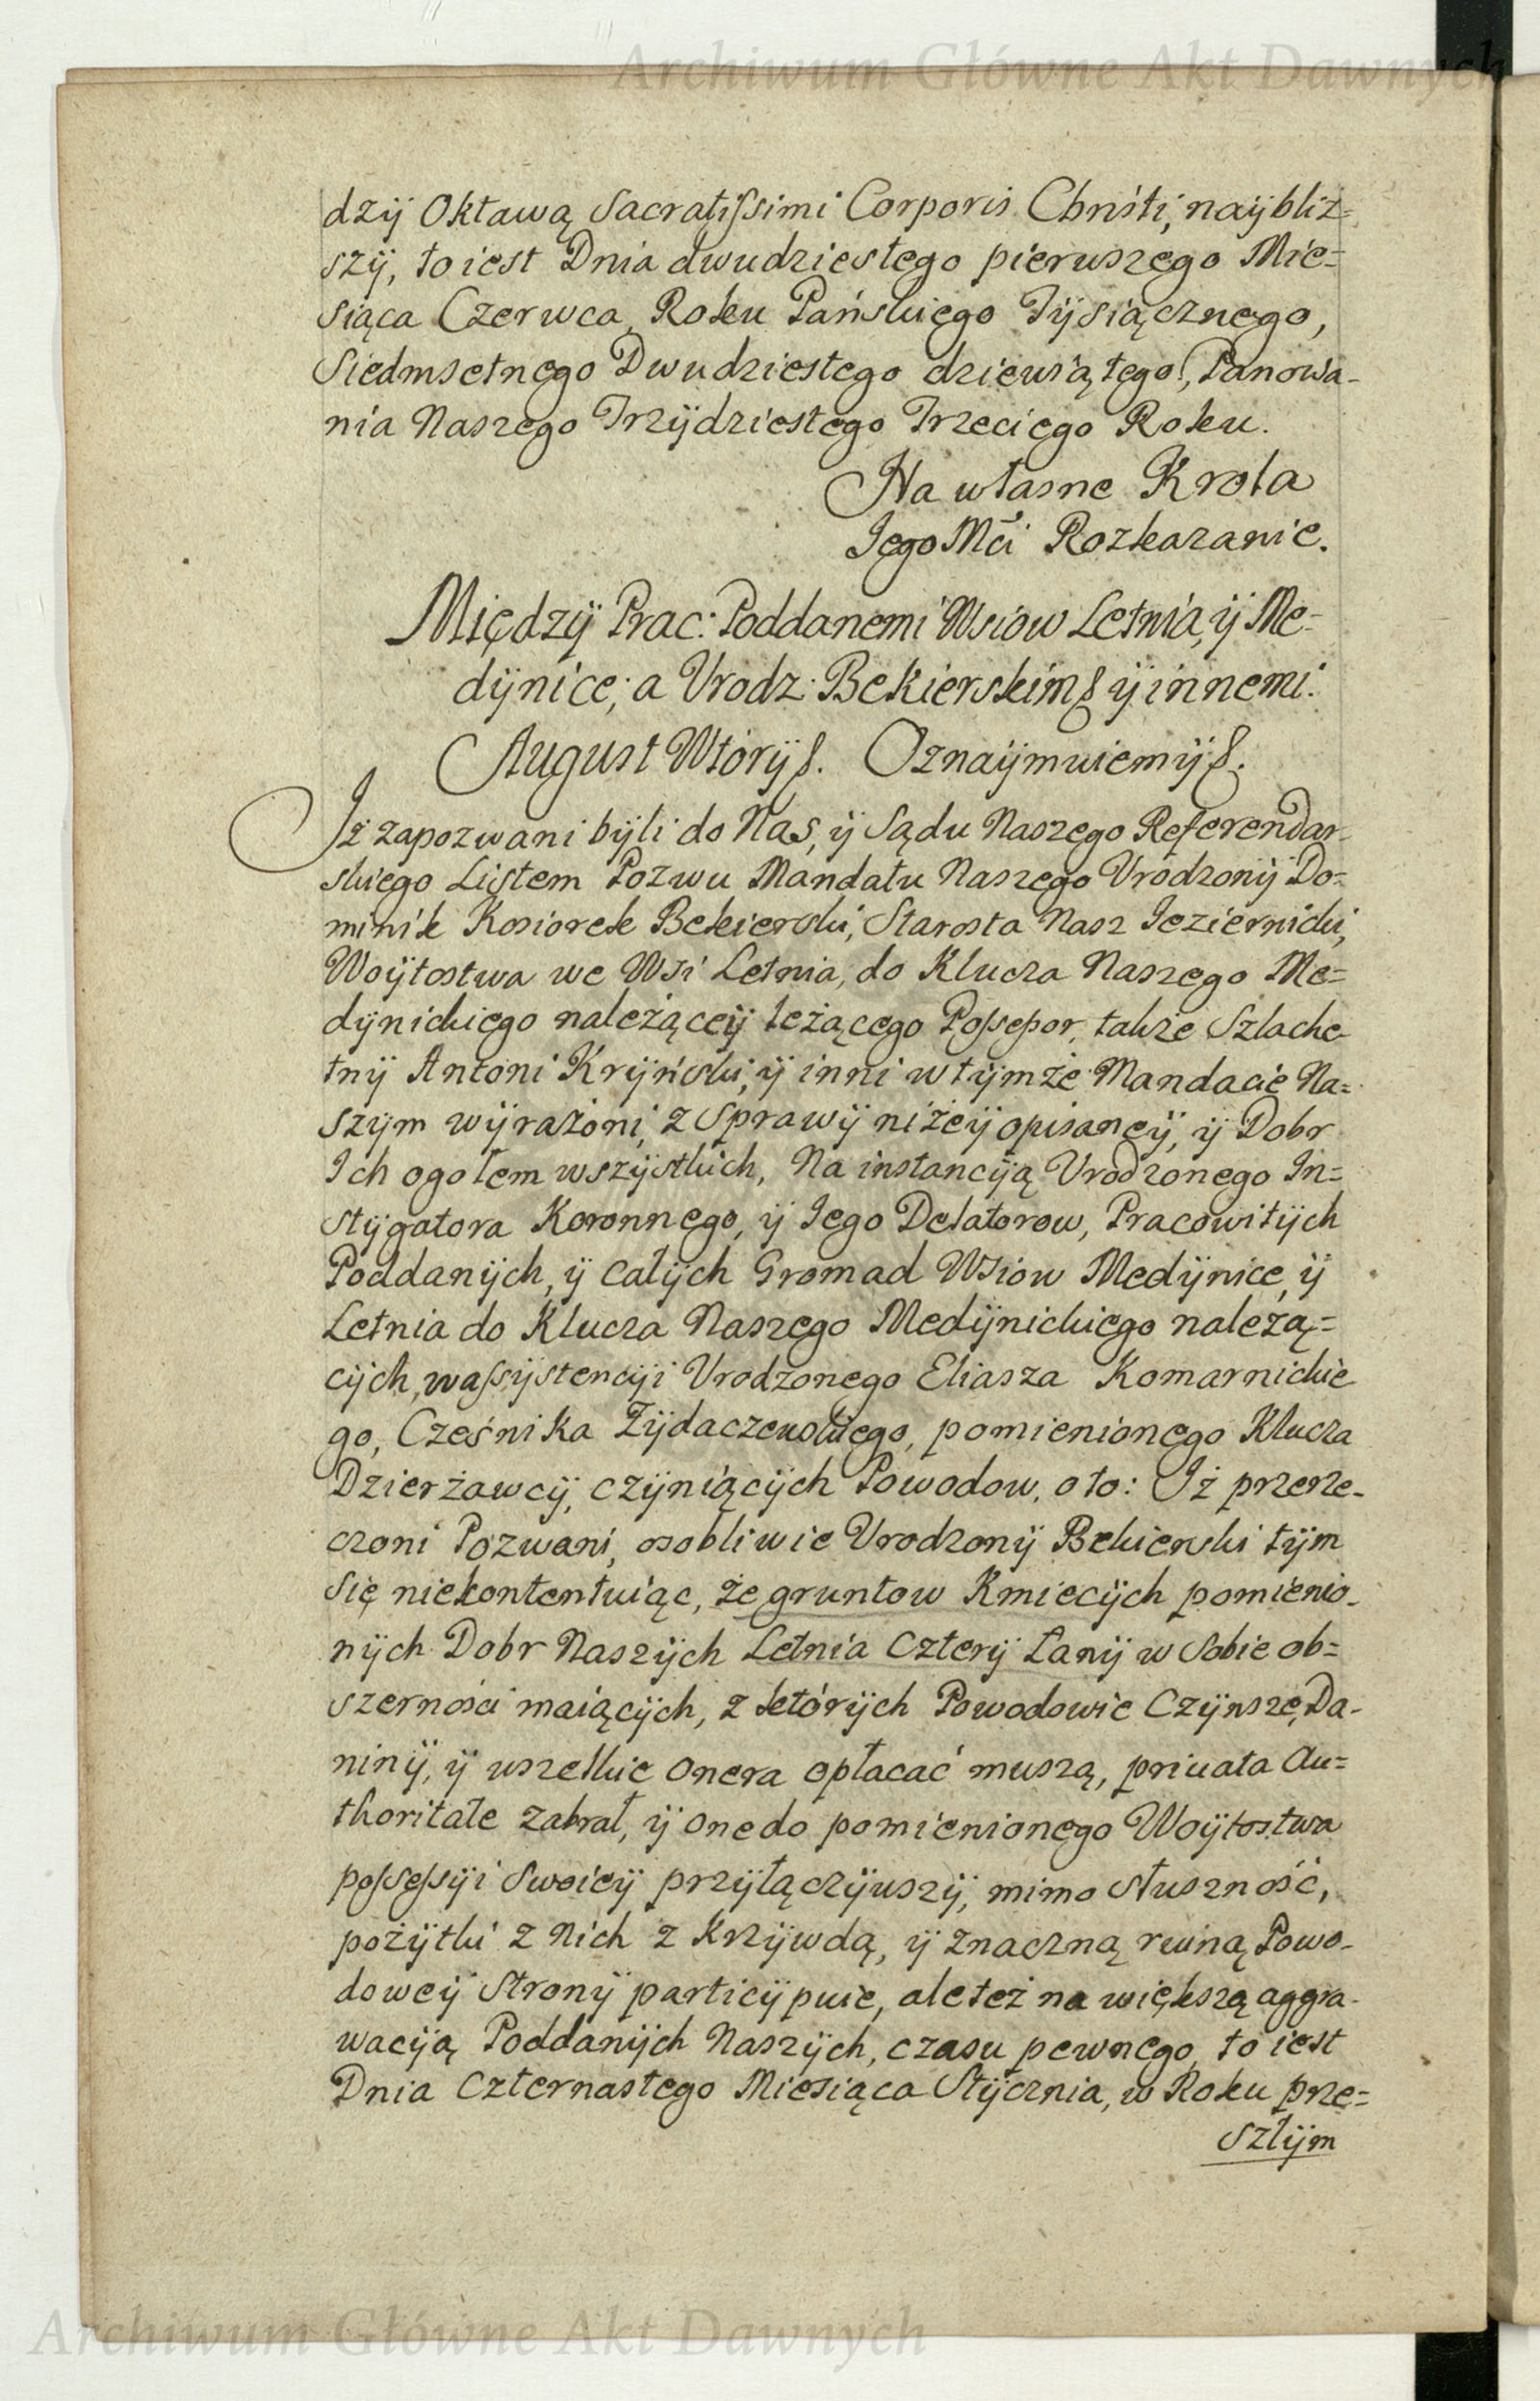 Archiwum Główne Akt Dawnych
dzÿ Oktawą Sacratissimi Corporis Chrīsti, naÿbliż=
szÿ, to iest Dnia dwudziestego pierwszego Mie=
siąca Czerwca, Roku Pańskiego Tÿsiącznego,
Siedmsetnego Dwudziestego dziewiątego, Panowa-
nia Naszego Trzÿdziestego Trzeciego Roku.
Na własne Krola
Jego Mći Rozkazanie.
Międzÿ Prac: Poddanemi Wsiow Letnia, ÿ Me-
dÿnice; a Vrodz: Bekierskim ÿ innemi.
August Wtorÿ. Oznaÿmuiemÿ.
Iż zapozwani bÿli do Nas, ÿ Sądu Naszego Referendar-
skiego Listem Pozwu Mandatu Naszego Vrodzonÿ Do=
minik Kosiorek Bekierski, Starosta Nasz Jeziernicki,
Woÿtostwa we Wsi Letnia, do Klucza Naszego Me=
dÿnickiego należąceÿ leżącego Possessor, także Szlache
tnÿ Antoni Krÿński, ÿ inni w tÿmże Mandacie Na=
szÿm wÿrażoni, z Sprawÿ niżeÿ opisaneÿ, ÿ Dobr
Ich ogołem wszÿstkich, Na instancÿą Vrodzonego In=
stÿgatora Koronnego, ÿ Jego Delatorow, Pracowitÿch
Poddanÿch, ÿ całÿch Gromad Wsiow Medÿnice, ÿ
Letnia do Klucza Naszego Medÿnickiego należą=
cÿch, w assÿstencÿi Vrodzonego Eliasza Komarnickie
go, Cześnika Zÿdaczewskiego, pomienionego Klucza
Dzierżawcÿ, czÿniącÿch Powodow, o to: Iż przerze-
czoni Pozwani, osobliwie Vrodzonÿ Bekierski tÿm
się niekontentuiąc, że gruntow Kmiecÿch pomienio-
nÿch Dobr Naszÿch Letnia Czterÿ Łanÿ w Sobie ob=
szerności maiącÿch, z ktorÿch Powodowie Czÿnsze, Da-
ninÿ, ÿ wszelkie onera opłacać muszą, priuata Au=
thoritate zabrał, ÿ one do pomienionego Woÿtostwa
possessÿi swoieÿ przÿłączÿwszÿ, mimo słuszność,
pożÿtki z nich z Krzÿwdą, ÿ znaczną ruiną Powo-
doweÿ Stronÿ particÿpuie, ale też na większą aggra-
wacÿą Poddanÿch Naszÿch, czasu pewnego, to iest
Dnia Czternastego Miesiąca Stÿcznia, w Roku prze=
szłÿm
Archiwum Główne Akt Dawnych